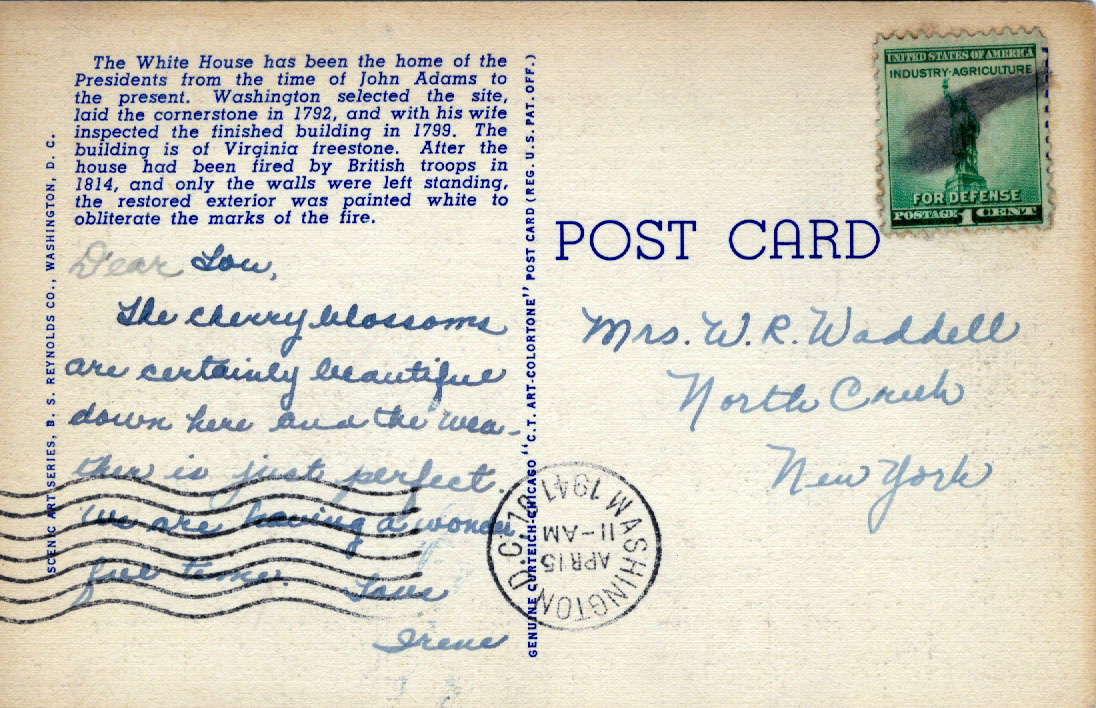 The White House has been the home of the
Presidents from the time of John Adams to
the present. Washington selected the site,
laid the cornerstone in 1792, and with his wife
inspected the finished building in 1799. The
building is of Virginia freestone. After the
house had been fired by British troops in
1814, and only the walls were left standing,
the restored exterior was painted white to
obliterate the marks of the fire.
SCENIC ART SERIES, B. S. REYNOLDS CO., WASHINGTON, D. C.
Dear Lou,
The cherry blossoms
are certainly beautiful
down here and the wea-
ther is just perfect.
We are having a wonder
ful time. Love
Irene
GENUINE CURTEICH-CHICAGO "C.T. ART-COLORTONE" POST CARD (REG. U.S. PAT. OFF.)
UNITED STATES OF AMERICA
INDUSTRY·AGRICULTURE
FOR DEFENSE
POSTAGE 1 CENT
POST CARD
Mrs. W. R. Waddell
North Creek
New York
WASHINGTON D.C. 13
APR 15
11-AM
1947 M